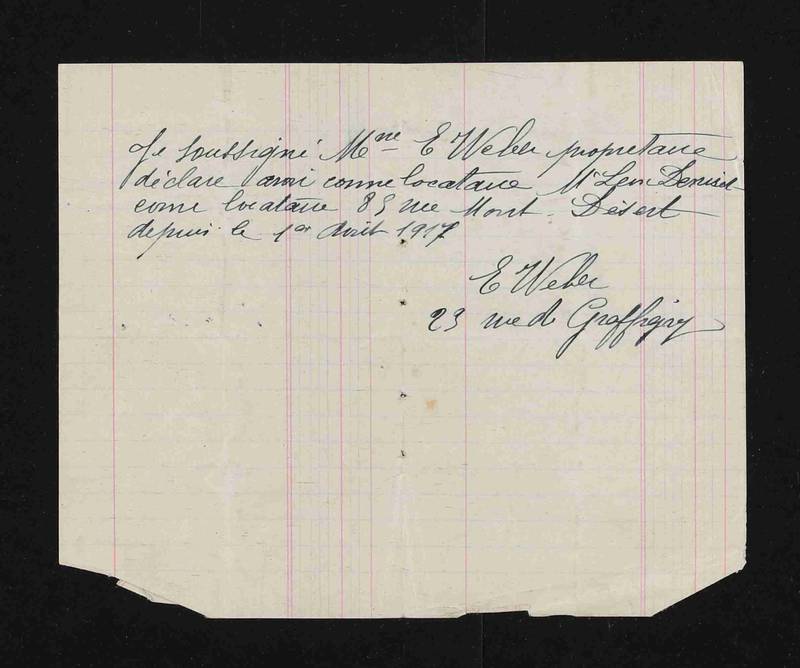 Je soussigné Mme E Weber propretaire
déclare avoir comme locataire Mr Leon Denisel
come locataire 83 rue Mont-Désert
depuis le 1er Avril 1917
E Weber
23 rue de Graffigny